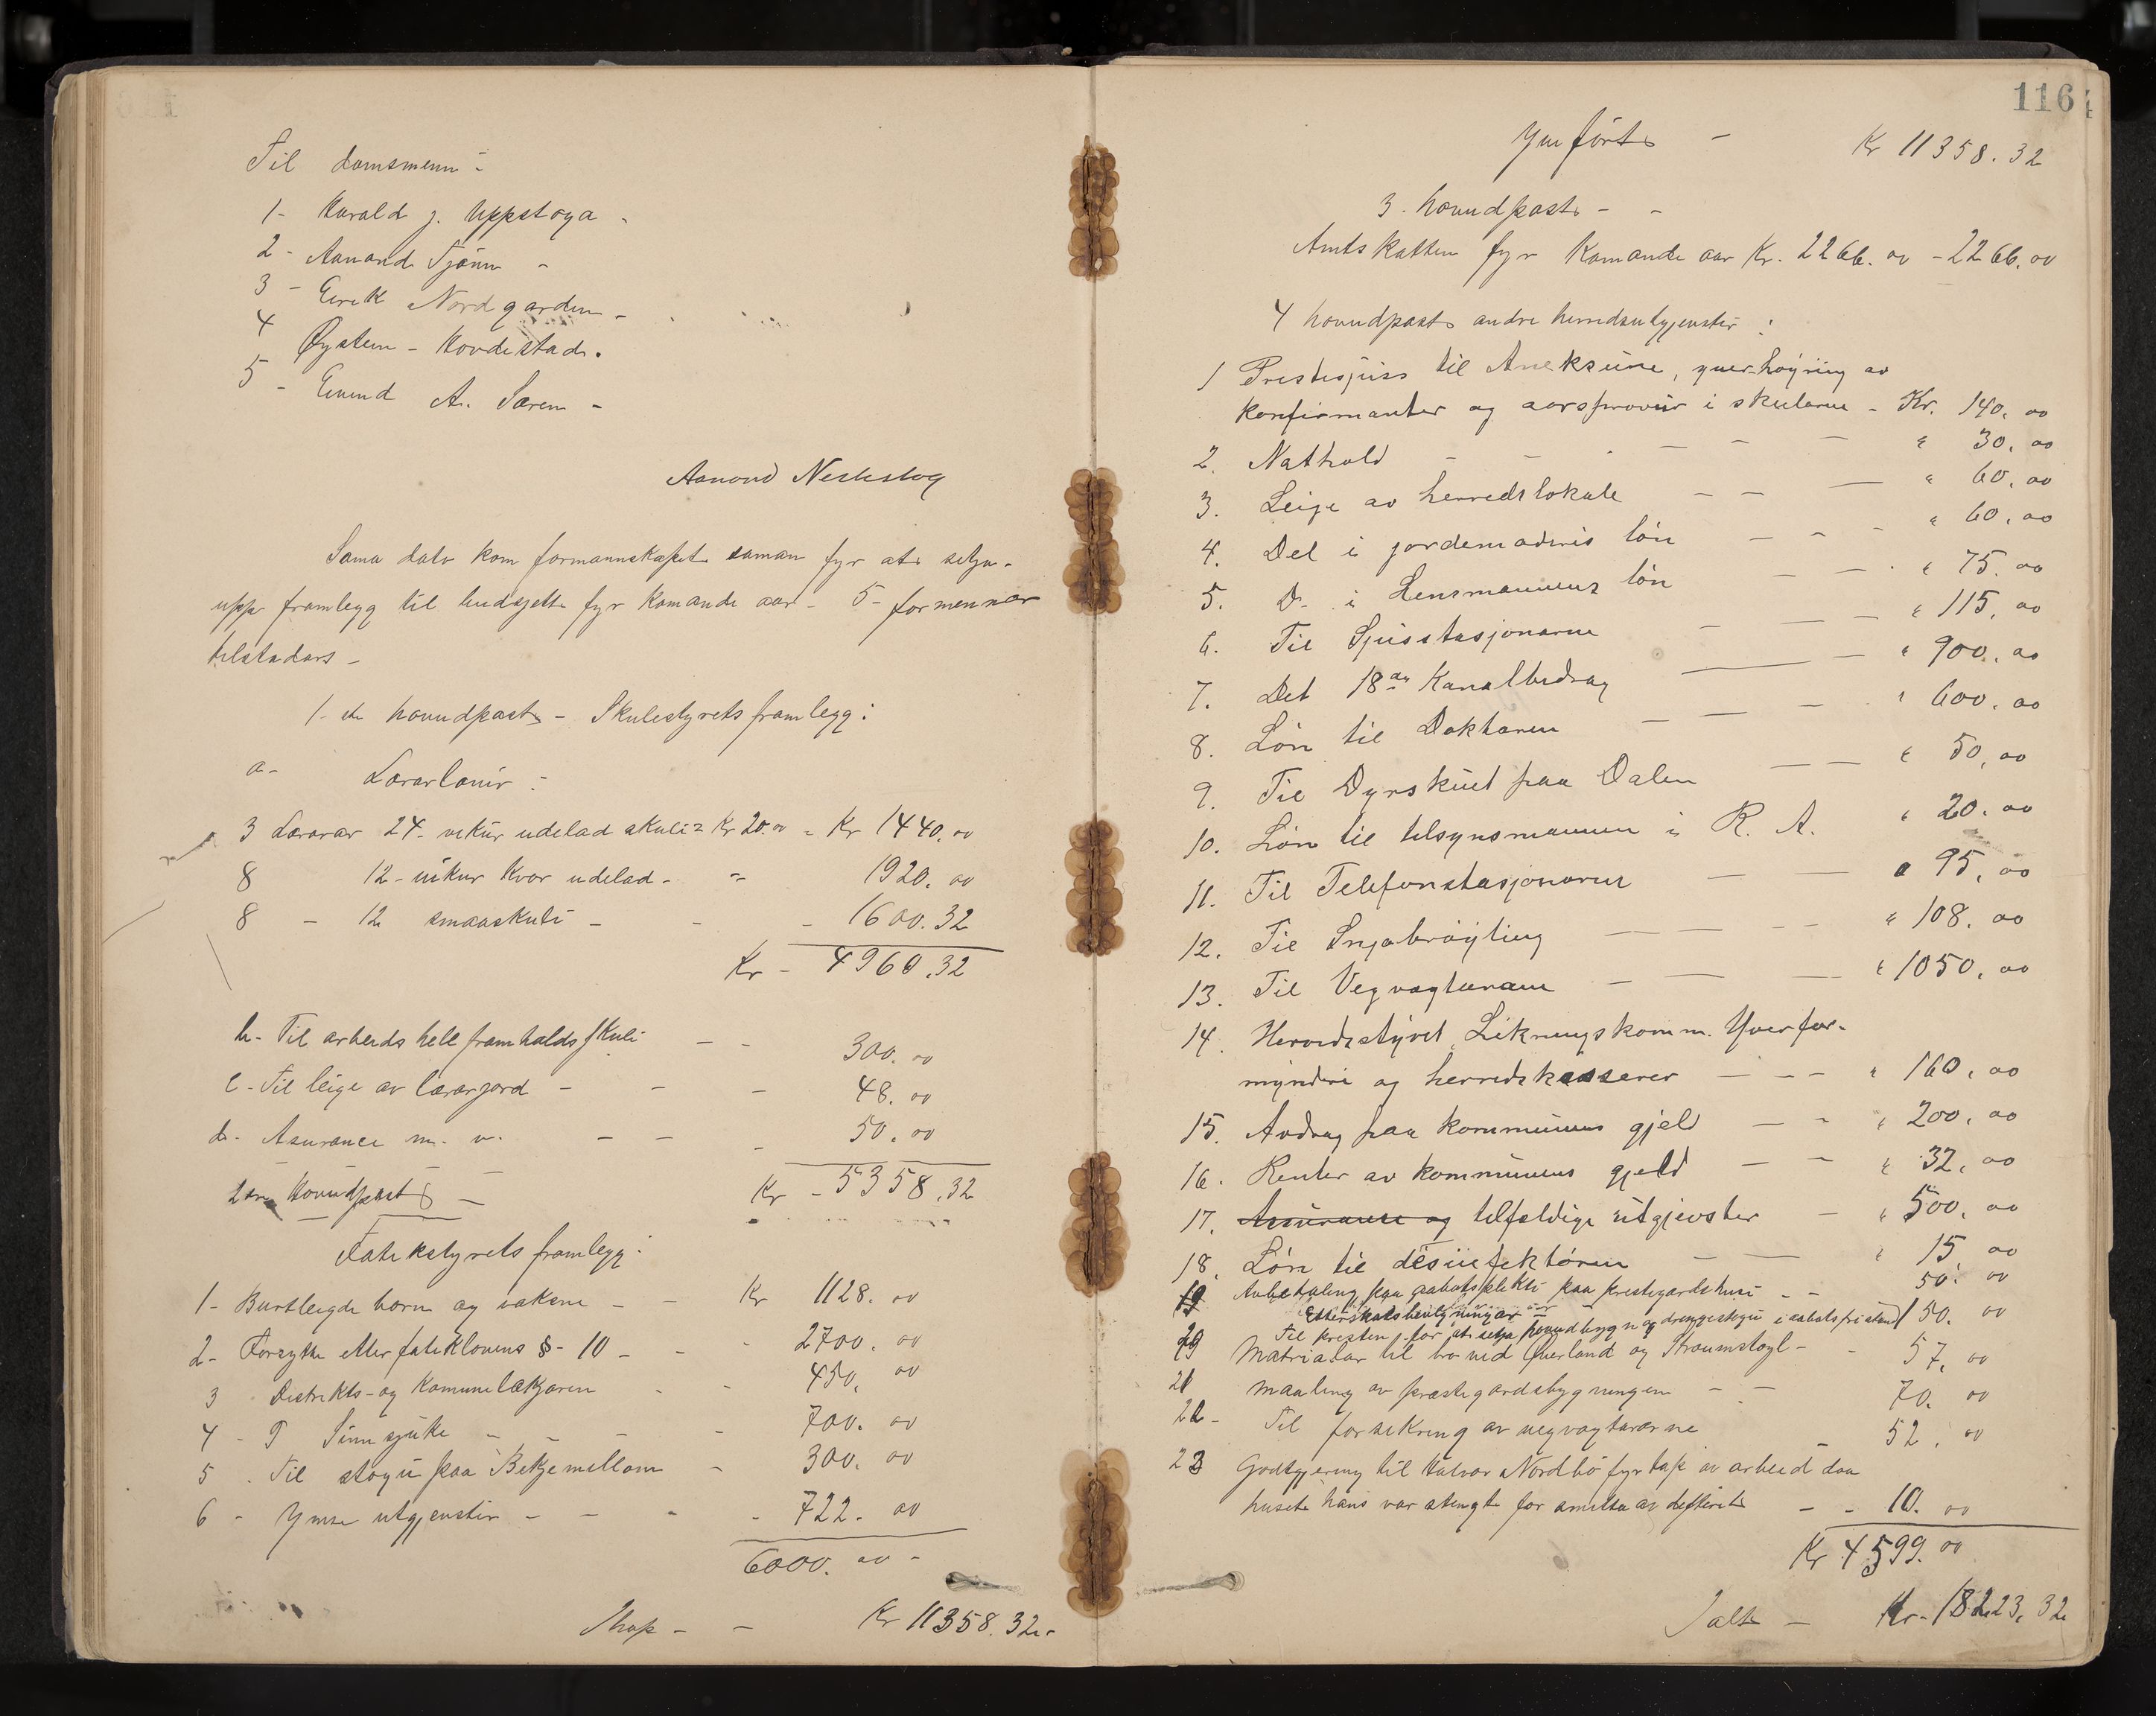 Til domsmenn -
1- Harald J. Uppstoga -
2- Aanond Tjønn -
3 - Eirik Nordgarden -
4 Øystein - Hovdestad.
5 - Eivind A. Særen -
Aanond Neslestog
Sama dato kom formannskapet saman fyr at setja -
upp framlegg til budsjett fyr komande aar - 5 - formennar
tilstadars -
1-ste hovudpost - Skulestyrets framlegg:
a- Lærarlønir :
3 Lærarar 24- vikur udelad skule = Kr 20.00 = Kr 1440.00
8 12 - vikur kvar udelad - " 1920.00
8 - 12 smaaskuli - - - 1600.32
Kr - 4960.32
b- Til arbeids hell framhaldsskuli - - 300.00
c - Til leige av lærarjord - - - 48.00
d - Asurance m. v. - - - 50.00
Kr - 5358.32
2dre Hovudpost -
Fatikstyrets framlegg:
1- Burtleigde born og vaksne - - Kr 1128.00
2- Forsytte etter fatiklovens § - 10 - - - 2700.00
3 Distrikts- og Komunelækjaren - - 450.00
4 - Sinnsjuke - - - - 700.00
5 - Til stogu paa Bekjemellom - 300.00
6 - Ymse utgjenster - - - - 722.00
6000.00 -
Ihop - - Kr 11358.32 -
116
Ymført - Kr 11358.32
3. hovudpost - -
Amtskatten fyr komande aar Kr. 2266.00 - 2266.00
4 hovudpost andre herredsutgjenster :
1 Prestesjuss til Aneksine, yverhøyring av
konfirmanter og aarsprøvur i skularne - Kr. 140.00
2. Nathold - - - - - - " 30.00
3. Leige av herredslokale - - - " 60.00
4. Del i jordemoderis løn - - - " 60.00
5. D. i Lensmannens løn - - . " 75.00
6. Til Sjusstasjonarne - - - - " 115.00
7. Det 18de Kanalbidrag - - " 900.00
8. Løn til Doktaren - - - " 600.00
9. Til Dyrskuet paa Dalen - - " 50.00
10. Løn til tilsynsmannen i R. A. " 20.00
11. Til Telefonstasjonarne - - " 95.00
12. Til Snjobrøyting - - - - " 108.00
13. Til Vegvogtarane - - - " 1050.00
14. Herredsstyret, Likningskomm. Yverfor-
mynderi og herredskasserer - - - " 160.00
15. Avdrag paa kommunens gjeld - - " 200.00
16. Renter av kommunens gjeld - - " 32.00
17. Assurance og tilfeldige utgjevster - " 500.00
18. Løn til desinfektøren - - " 15 00
19 Avbetaling paa aabotsplikti paa prestegardshusi - - 50.00
Til presten for at setja hovudbygn og drengestogu i aabotsfri stand 150.00
20 Matrialar til bro ved Øverland og Straumstogl - - 57.00
21 Maaling av prestegardsbygningen - - 70.00
22 - Til forsekring av vegvogtararne 52.00
23 Godtgjering til Halvor Nordbø fyr tap av arbeid daa
huset hans var stengt for smitta av defterit - - 10.00
Kr 4599.00
Ialt - Kr. 18223.32